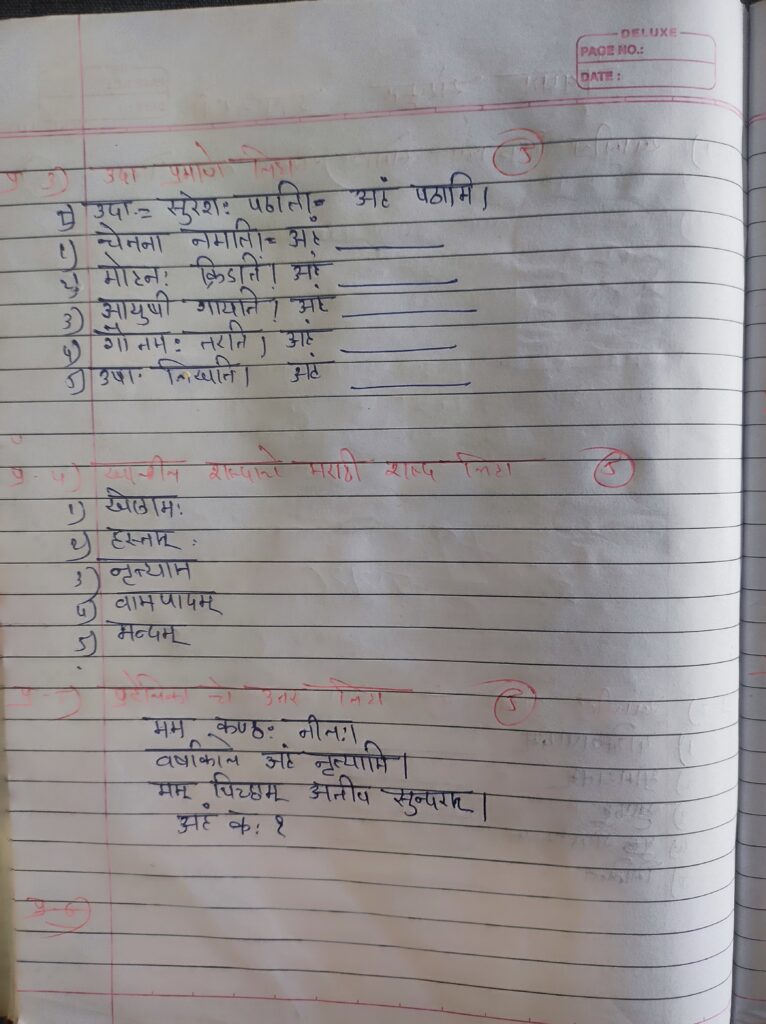 DELUXE
PAGE NO.:
DATE :
प्र ३) उदा प्रमाणे लिहा ५
१) उदा.= सुरेशः पठति= अहं पठामि।
१) चेतना नमति= अहं ______
२) मोहनः क्रिडति। अहं ______
३) आयुषी गायति। अहं ______
४) गौतमः तरति। अहं ______
५) उषाः लिखति। अहं ______
प्र-४) खालील शब्दाचे मराठी शब्द लिहा ५
१) खेलामः
२) हस्तम् :
३) नृत्याम
४) वामपादम्
५) मन्दम्
प्रहेलिका चे उत्तर लिहा ५
मम कण्ठः नीलः।
वर्षाकाले अहं नृत्यामि।
मम् पिच्छम् अतीव सुन्दरम्।
अहं कः ?
प्र-६)